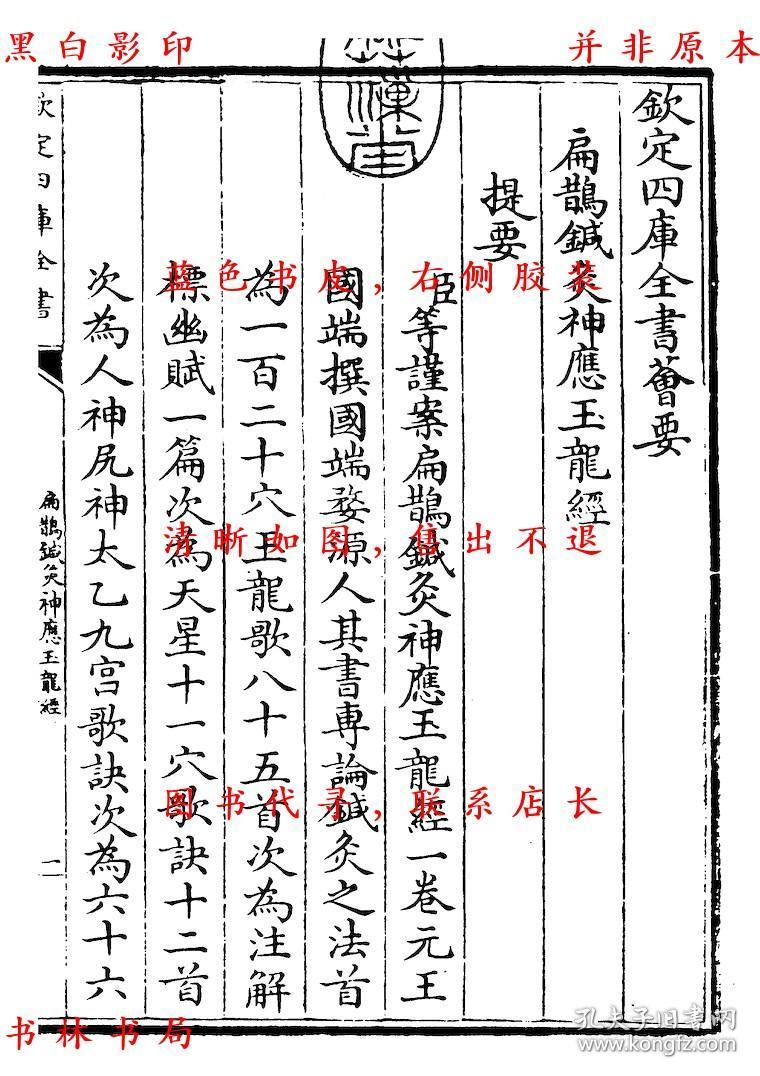 黑白影印
并非原本
欽定四庫全書薈要
扁鵲鍼灸神應玉龍經
提要
臣等謹案扁鵲鍼灸神應玉龍經一卷元王
國端撰國端婺源人其書專論鍼灸之法首
為一百二十穴玉龍歌八十五首次為注解
標幽賦一篇次為天星十一穴歌訣十二首
次為人神尻神太乙九宮歌訣次為六十六
欽定四庫全書
扁鵲鍼灸神應玉龍經
一
蓝色书皮,右侧胶装
清晰如图,售出不退
图书代寻,联系店长
书林书局
孔夫子旧书网
www.kongfz.com